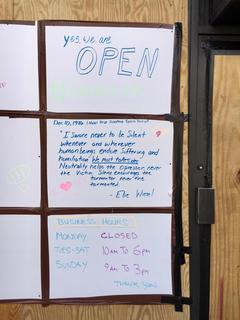 Yes, we are
OPEN
Dec. 10, 1986
"I swore never to be silent
whenever and wherever
human beings endure suffering and
humiliation. We must take sides.
Neutrality helps the oppressor, never
the victim. Silence encourages the
tormentor, never the
tormented."
- Elie Wiesel
BUSINESS HOURS
MONDAY CLOSED
TUES-SAT 10am To 6pm
SUNDAY 9am To 3pm
THANK YOU